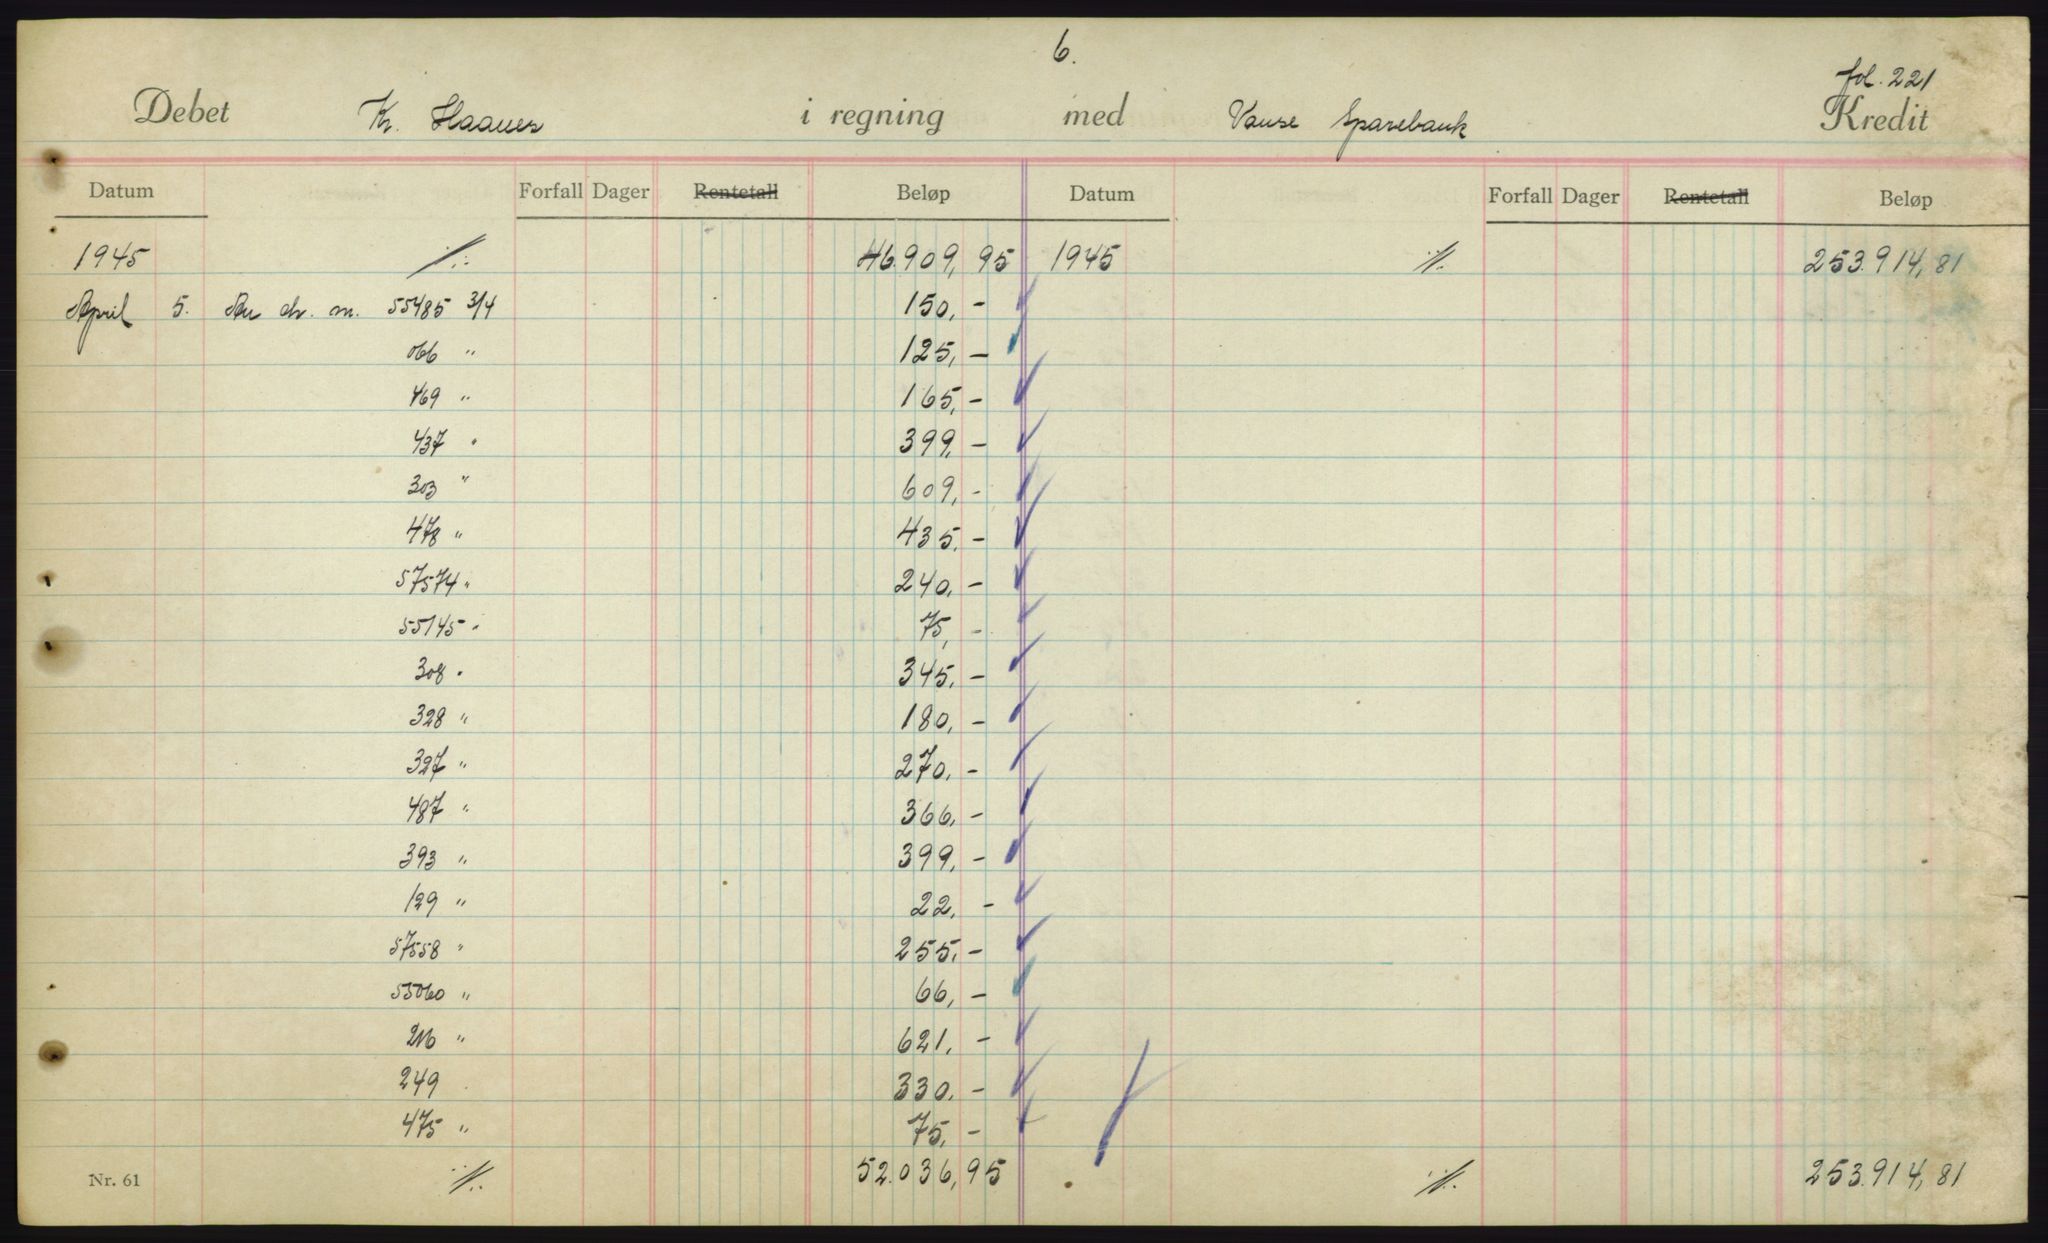 6.
fol. 221
Debet Kr. Haaues i regning med Vanse Sparebank Kredit
Datum Forfall Dager Rentetall Beløp Datum Forfall Dager Rentetall Beløp
1945 ·/· 46.909,95 1945 ·/· 253.914,81
April 5. An ch. m. 55485 3/4 150,-
066 " 125,-
469 " 165,-
437 " 399,-
303 " 609,-
478 " 435,-
57574 " 240,-
55145 " 75,-
308 " 345,-
328 " 180,-
327 " 270,-
487 " 366,-
393 " 399,-
129 " 22,-
57558 " 255,-
55060 " 66,-
216 " 621,-
249 330,-
475 " 75,-
Nr. 61 ·/· 52.036,95 ·/· 253.914,81